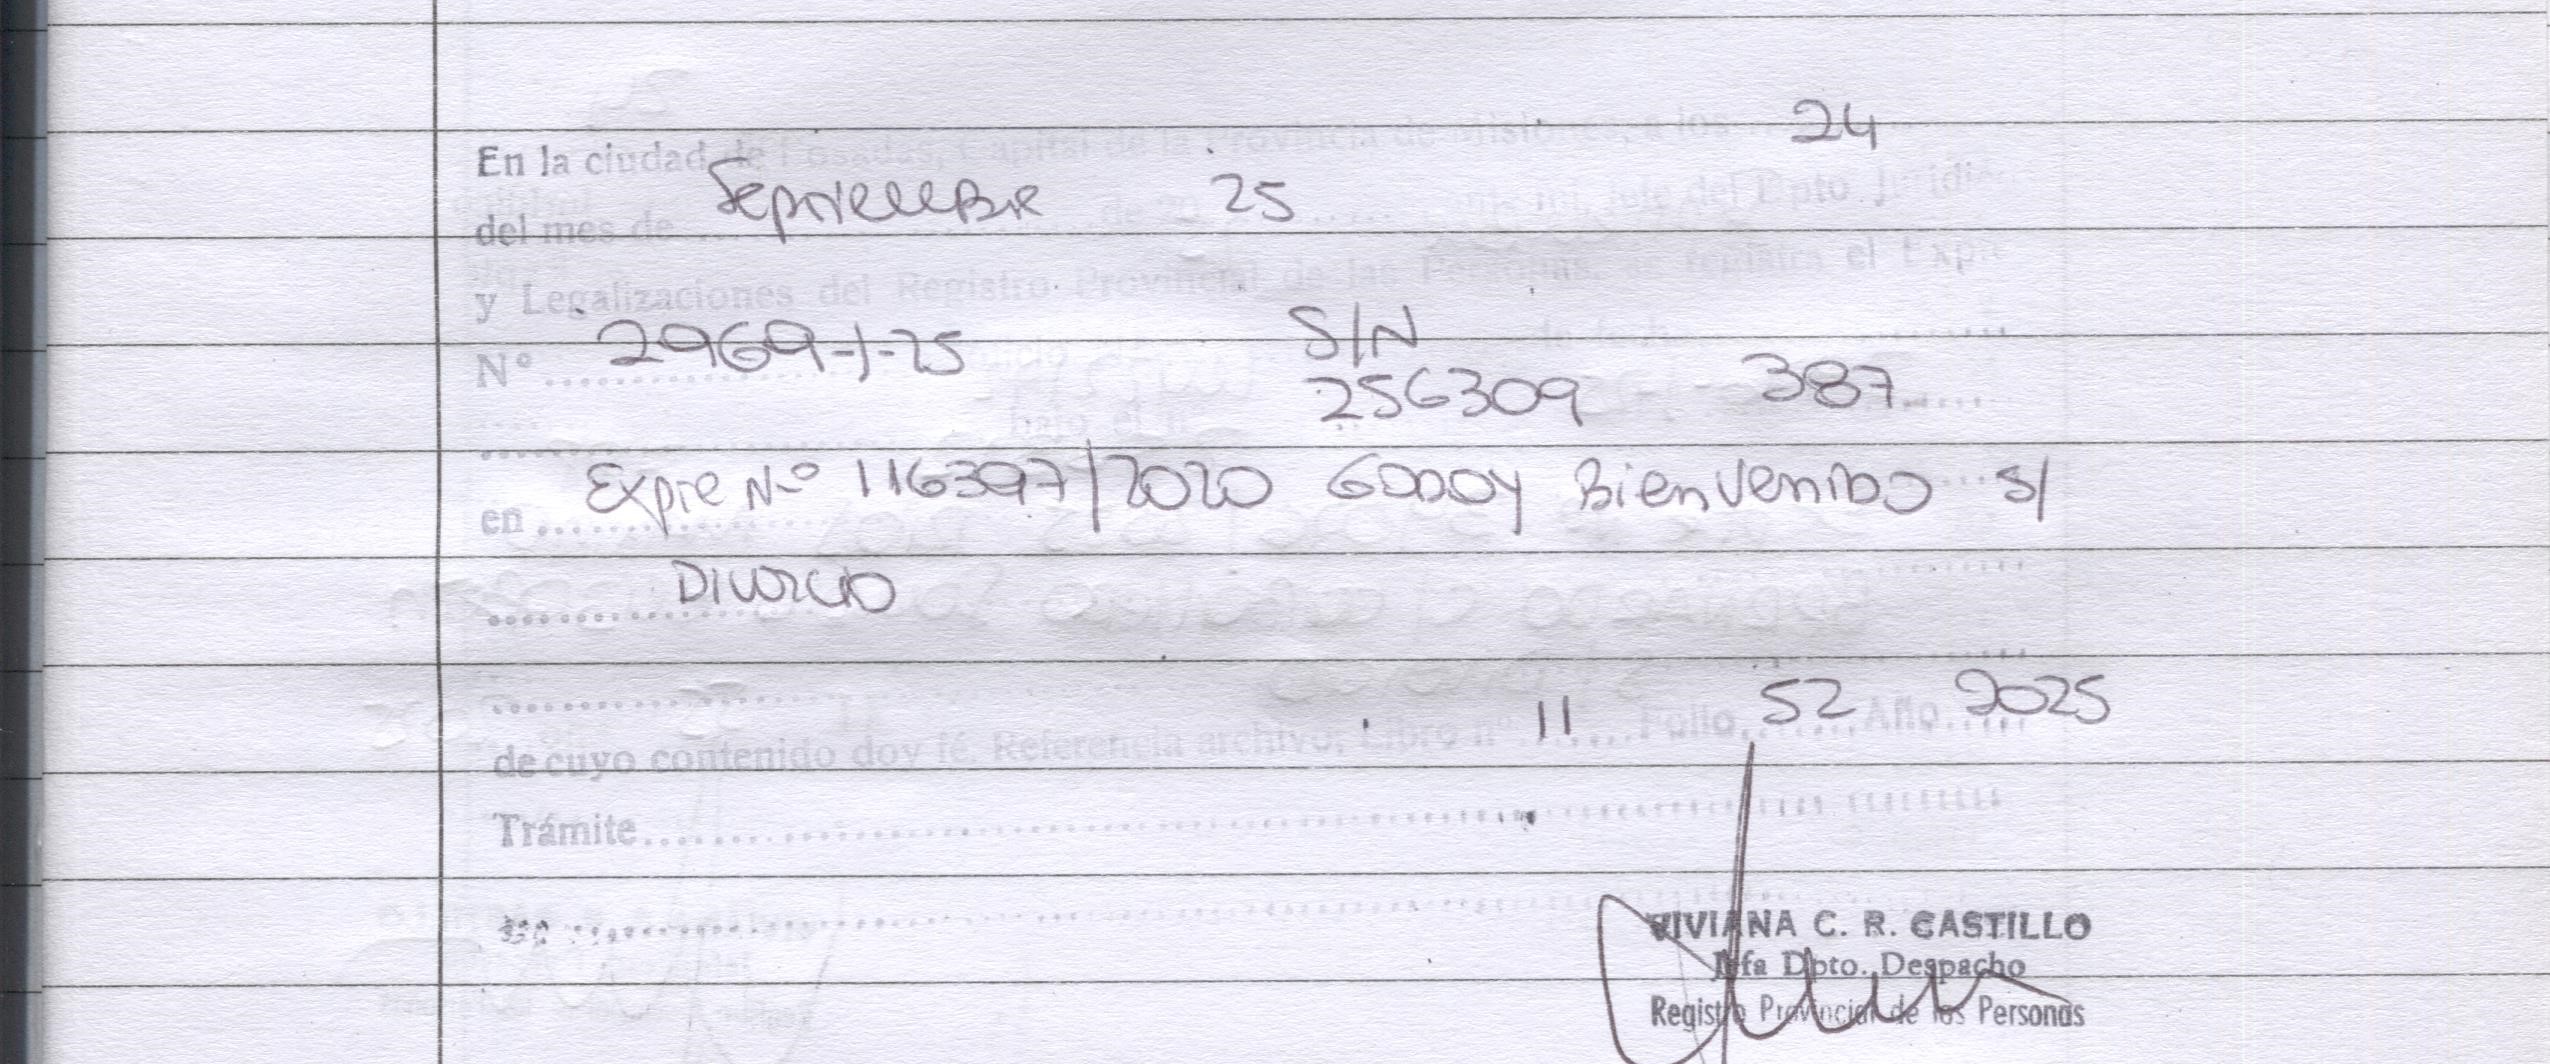 24
En la ciudad de Posadas, Capital de la Provincia de Misiones, a los
Septiembre 25
del mes de ........ de 20 ........ ante mi, Jefe del Dpto. Jurídic
y Legalizaciones del Registro Provincial de las Personas, se registra el Expte
S/N
Nº ........ 2969-J-25
256309 387
bajo el nº
Expte Nº 116397/2020 Godoy Bienvenido S/
en ........
Divorcio
11 52 2025
de cuyo contenido doy fé. Referencia archivo; Libro nº ........ Folio ........ Año ........
Trámite ........
VIVIANA C. R. CASTILLO
Jefa Dpto. Despacho
Registro Provincial de las Personas